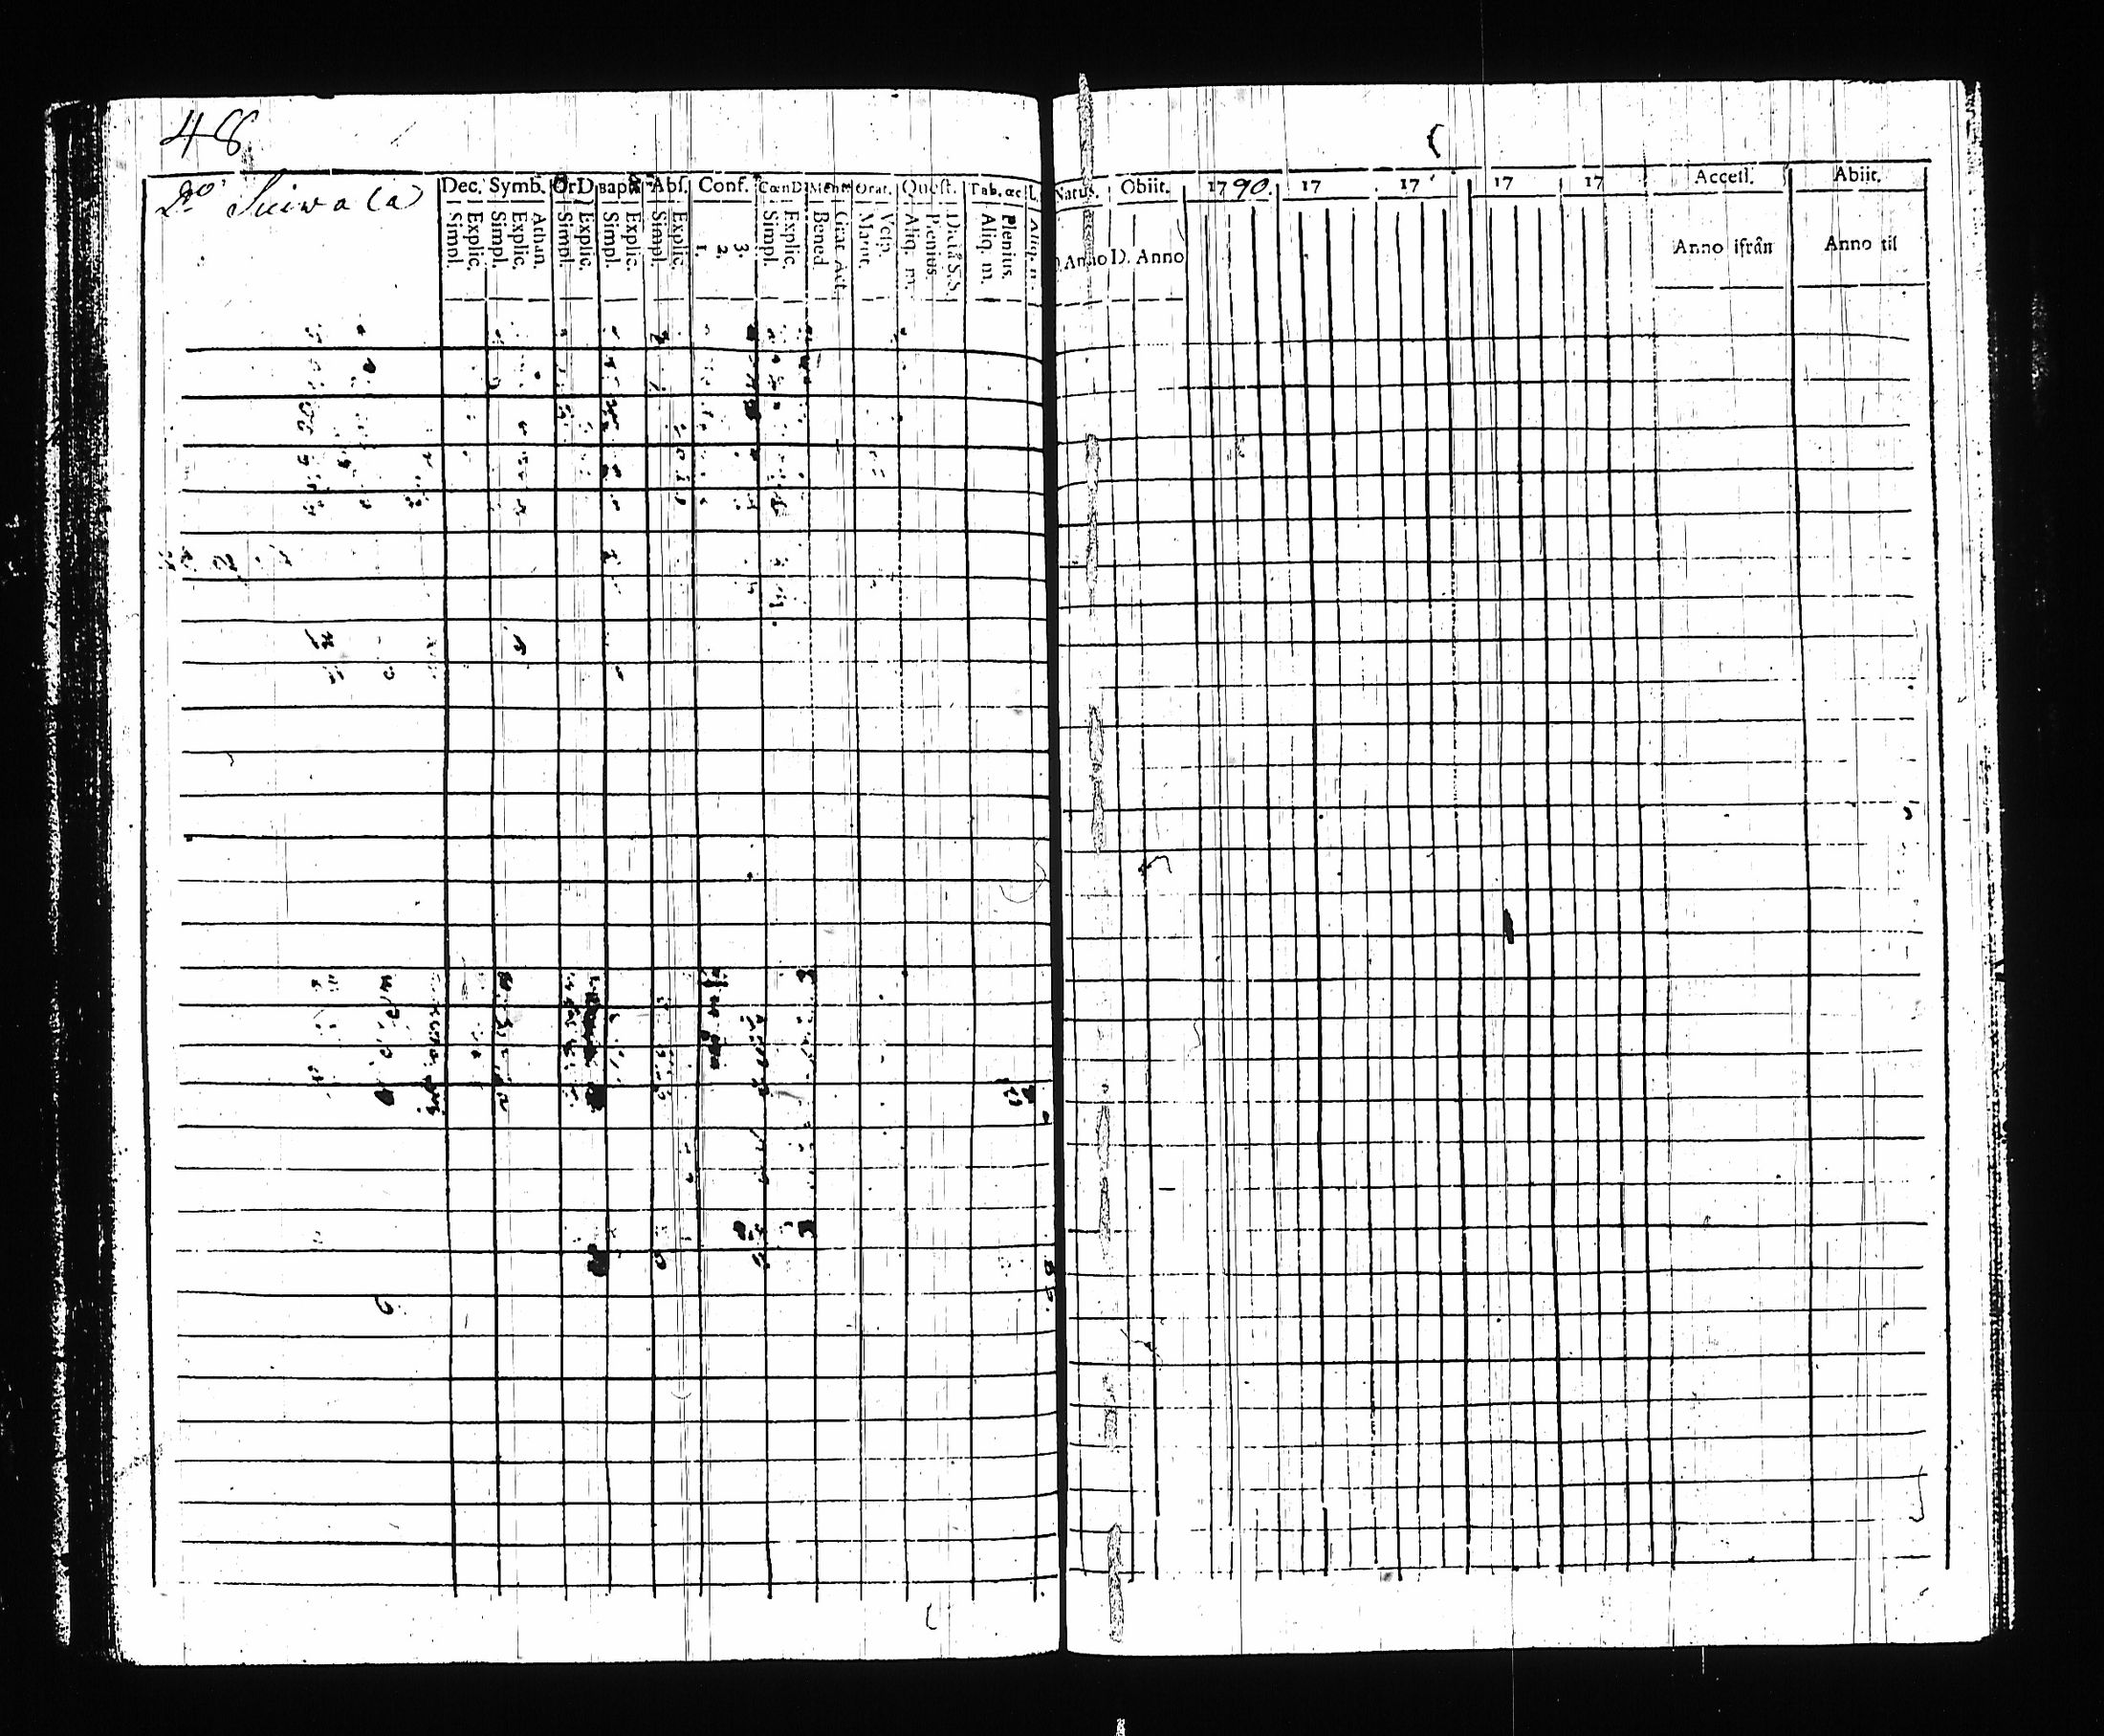 48
No Suiwala
Dec. Symb. OrD. Bapt. Abs. Conf. CœnD. Mens. Orat. Quest. Tab. œc. L
Simpl. Explic. Simpl. Explic. Athan. Simpl. Explic. Simpl. Explic. Simpl. Explic. 1. 2. 3. Simpl. Explic. Bened. Grat. Act. Matut. Vesp. Aliq. m. Plenius. Dicta S.S. Aliq. m. Plenius. Aliq. m.
Natus. Obiit. 1790. 17 17 17 17 Access. Abiit.
Anno D. Anno Anno ifrån Anno til